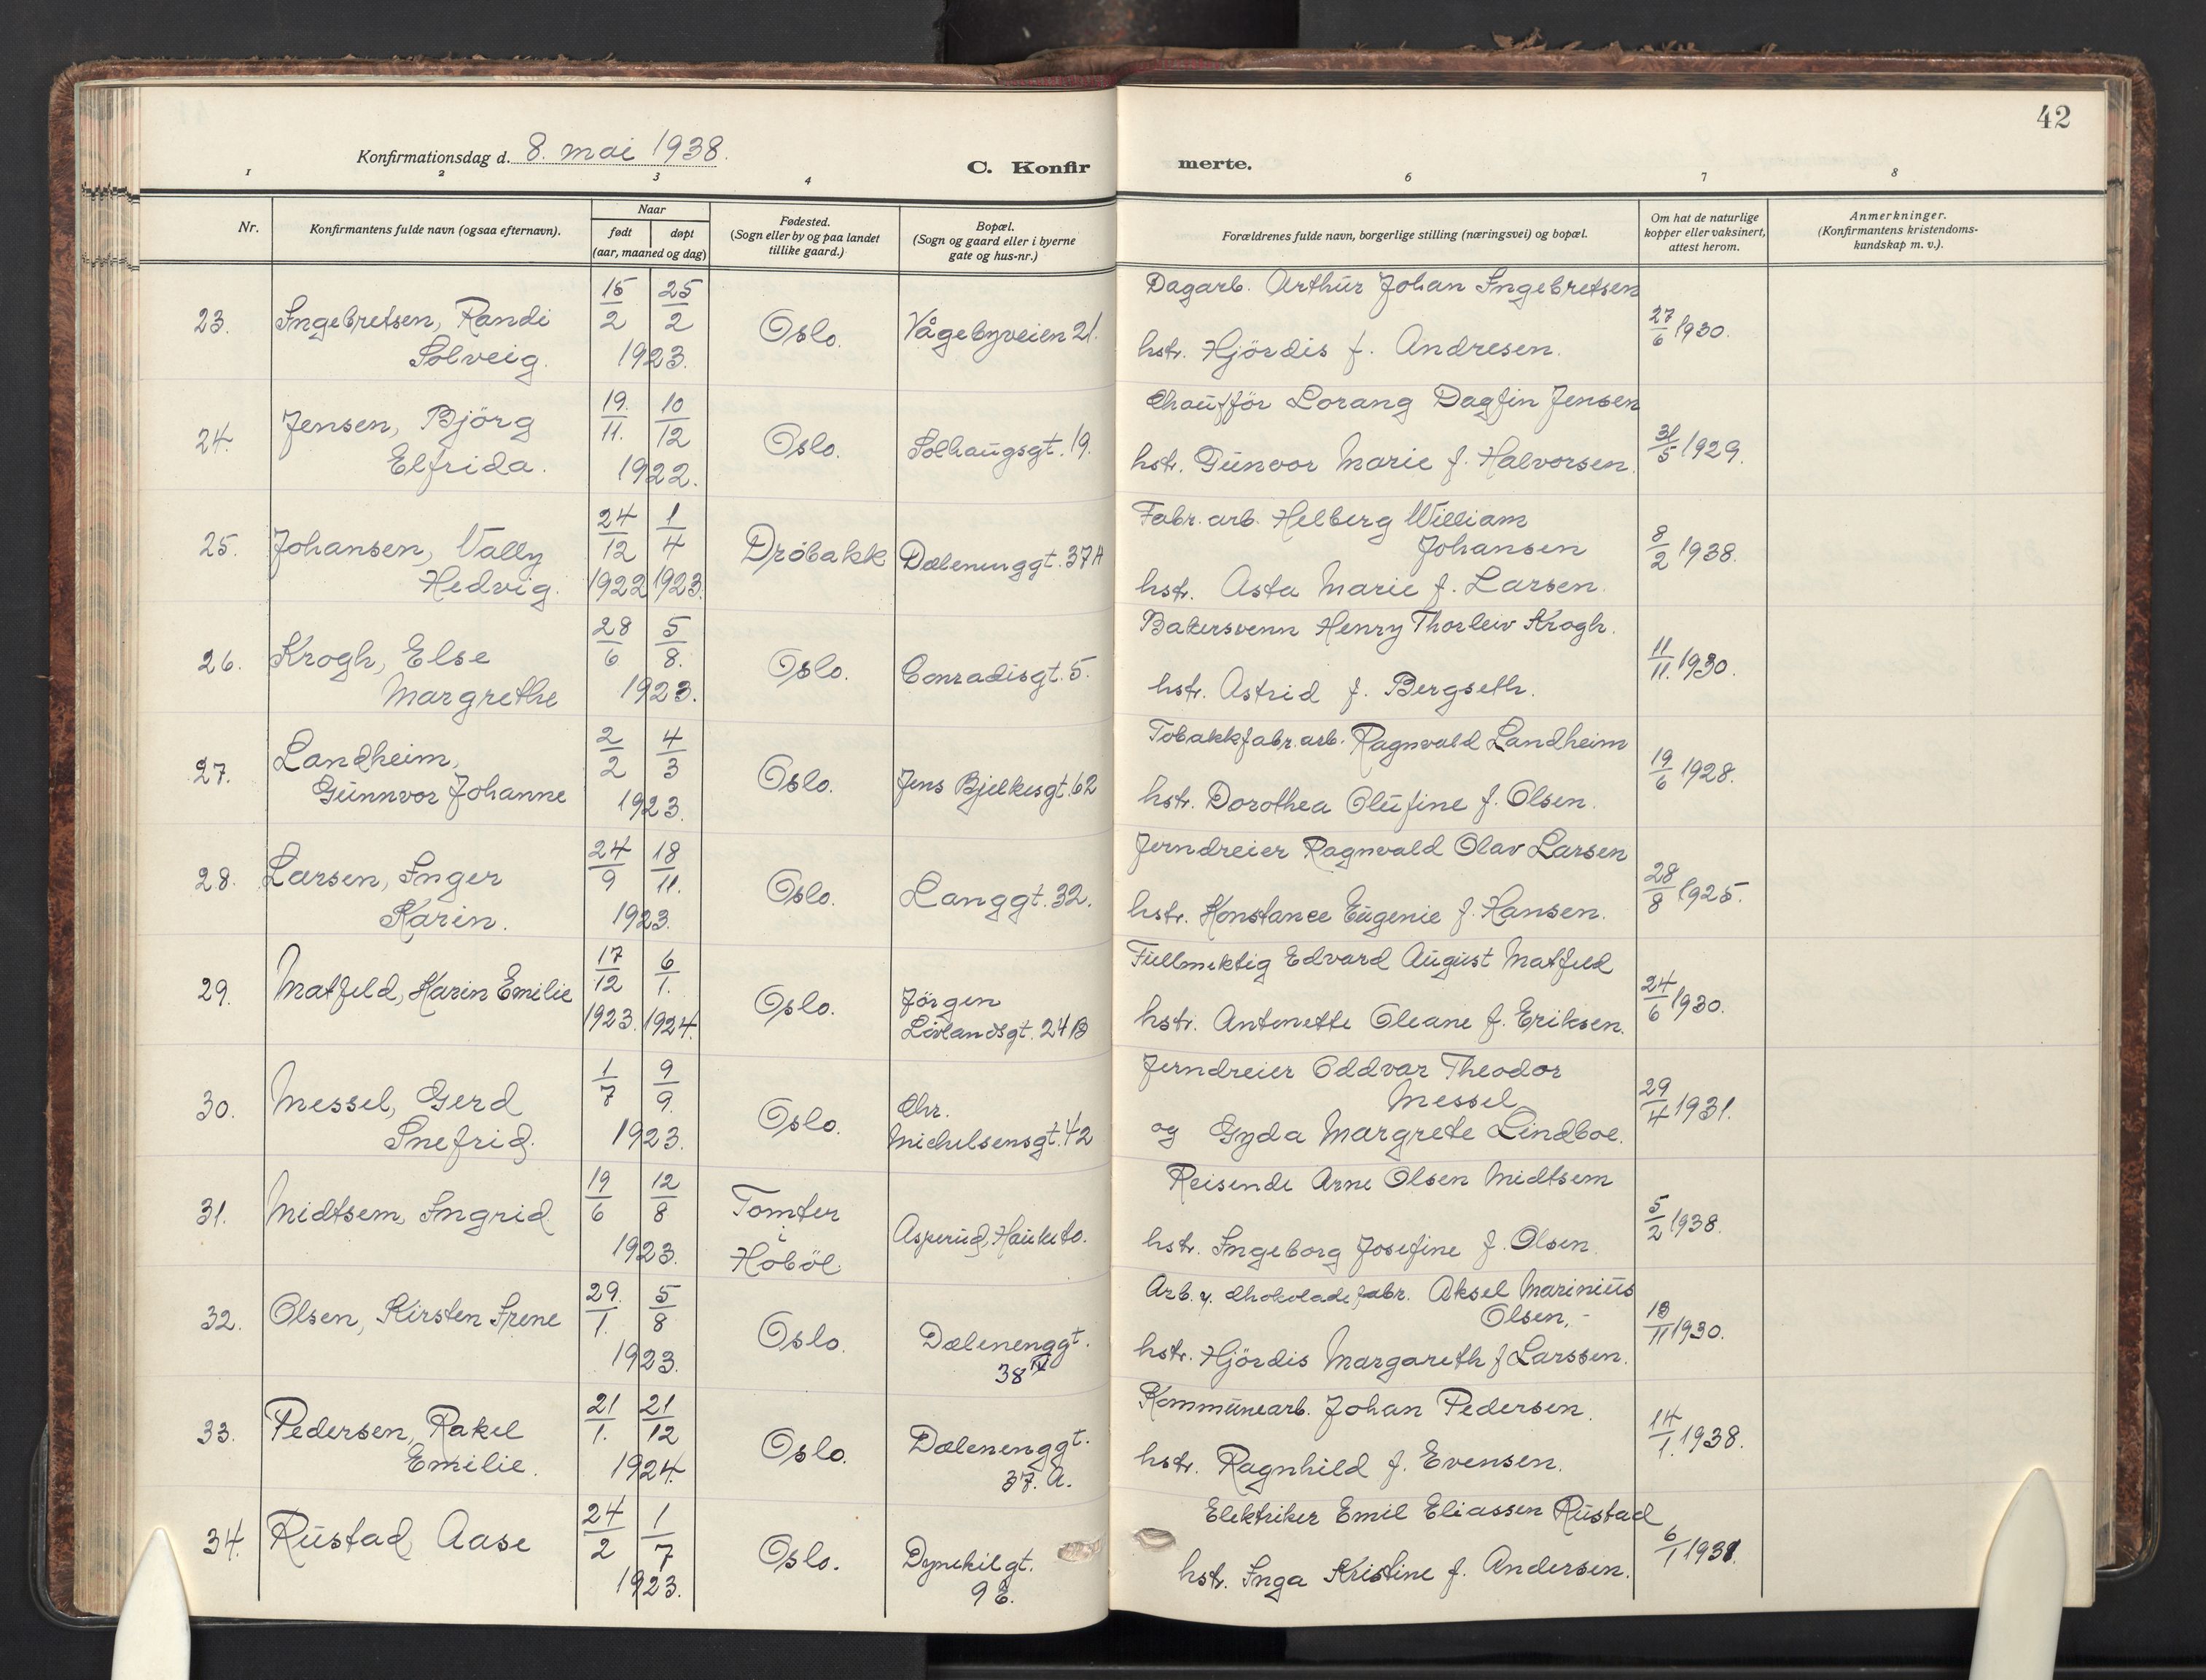 42
Konfirmationsdag d. 8. mai 1938.
C. Konfir merte.
1 2 3 4 6 7 8
Nr.
Konfirmantens fulde navn (ogsaa efternavn).
Naar
født døpt
(aar, maaned og dag)
Fødested.
(Sogn eller by og paa landet
tillike gaard.)
Bopæl.
(Sogn og gaard eller i byerne
gate og hus-nr.)
Forældrenes fulde navn, borgerlige stilling (næringsvei) og bopæl.
Om hat de naturlige
kopper eller vaksinert,
attest herom.
Anmerkninger.
(Konfirmantens kristendoms-
kundskap m. v.).
23. Ingebretsen, Randi
Solveig.
15/2 25/2
1923.
Oslo.
Vågebyveien 21.
Dagarb. Arthur Johan Ingebretsen
hstr. Hjördis f. Andresen.
27/6 1930.
24. Jensen, Björg
Elfrida.
19./11. 10/12
1922.
Oslo.
Solhaugsgt. 19.
Chaufför Lorang Dagfin Jensen
hstr. Gunvor Marie f. Halvorsen.
31/5 1929.
25. Johansen, Vally
Hedvig.
24/12 1/4
1922 1923.
Drøbakk
Dælenenggt. 37A
Fabr. arb. Helberg William
Johansen
hstr. Asta Marie f. Larsen.
8/2 1938.
26. Krogh, Else
Margrethe
28/6 5/8.
1923.
Oslo.
Conradisgt. 5.
Bakersvenn Henry Thorleiv Krogh.
hstr. Astrid f. Bergseth.
11/11. 1930.
27. Landheim,
Gunnvor Johanne
2/2 4/3
1923.
Oslo.
Jens Bjelkesgt. 62
Tobakkfabr. arb. Ragnvald Landheim
hstr. Dorothea Olufine f. Olsen.
19/6 1928.
28. Larsen, Inger
Karin.
24/9 18/11.
1923.
Oslo.
Langgt. 32.
Jerndreier Ragnvald Olav Larsen
hstr. Konstance Eugenie f. Hansen.
28/8 1925.
29. Matfeld, Karin Emilie
17/12 6/1.
1923. 1924.
Oslo.
Jörgen
Lövlandsgt. 24 B
Fullmektig Edvard August Matfeld
hstr. Antonette Oleane f. Eriksen.
24/6 1930.
30. Messel, Gerd
Snefrid.
1/7 9/9.
1923.
Oslo.
Chr.
Michelsensgt. 42
Jerndreier Oddvar Theodor
Messel
og Gyda Margrete Lindboe.
29/4 1931.
31. Midtsem, Ingrid
19/6 12/8
1923.
Tomter
i
Høböl.
Asperud, Hauketo.
Reisende Arne Olsen Midtsem
hstr. Ingeborg Josefine f. Olsen.
5/2 1938.
32. Olsen, Kirsten Irene
29./1. 5/8
1923.
Oslo.
Dælenenggt.
38 IV
Arb. v. Chokoladefabr. Aksel Marinius
Olsen,-
hstr. Hjördis Margareth f Larssen.
18/11 1930.
33. Pedersen, Rakel
Emilie.
21/1. 21/12
1924.
Oslo.
Dælenenggt.
37. A.
Kommunearb. Johan Pedersen.
hstr. Ragnhild f. Evensen.
14/1. 1938.
34. Rustad, Aase
24/2 1/7
1923.
Oslo.
Dynekilgt.
9 E.
Elektriker Emil Eliassen Rustad
hstr. Inga Kristine f. Andersen.
6/1 1938.